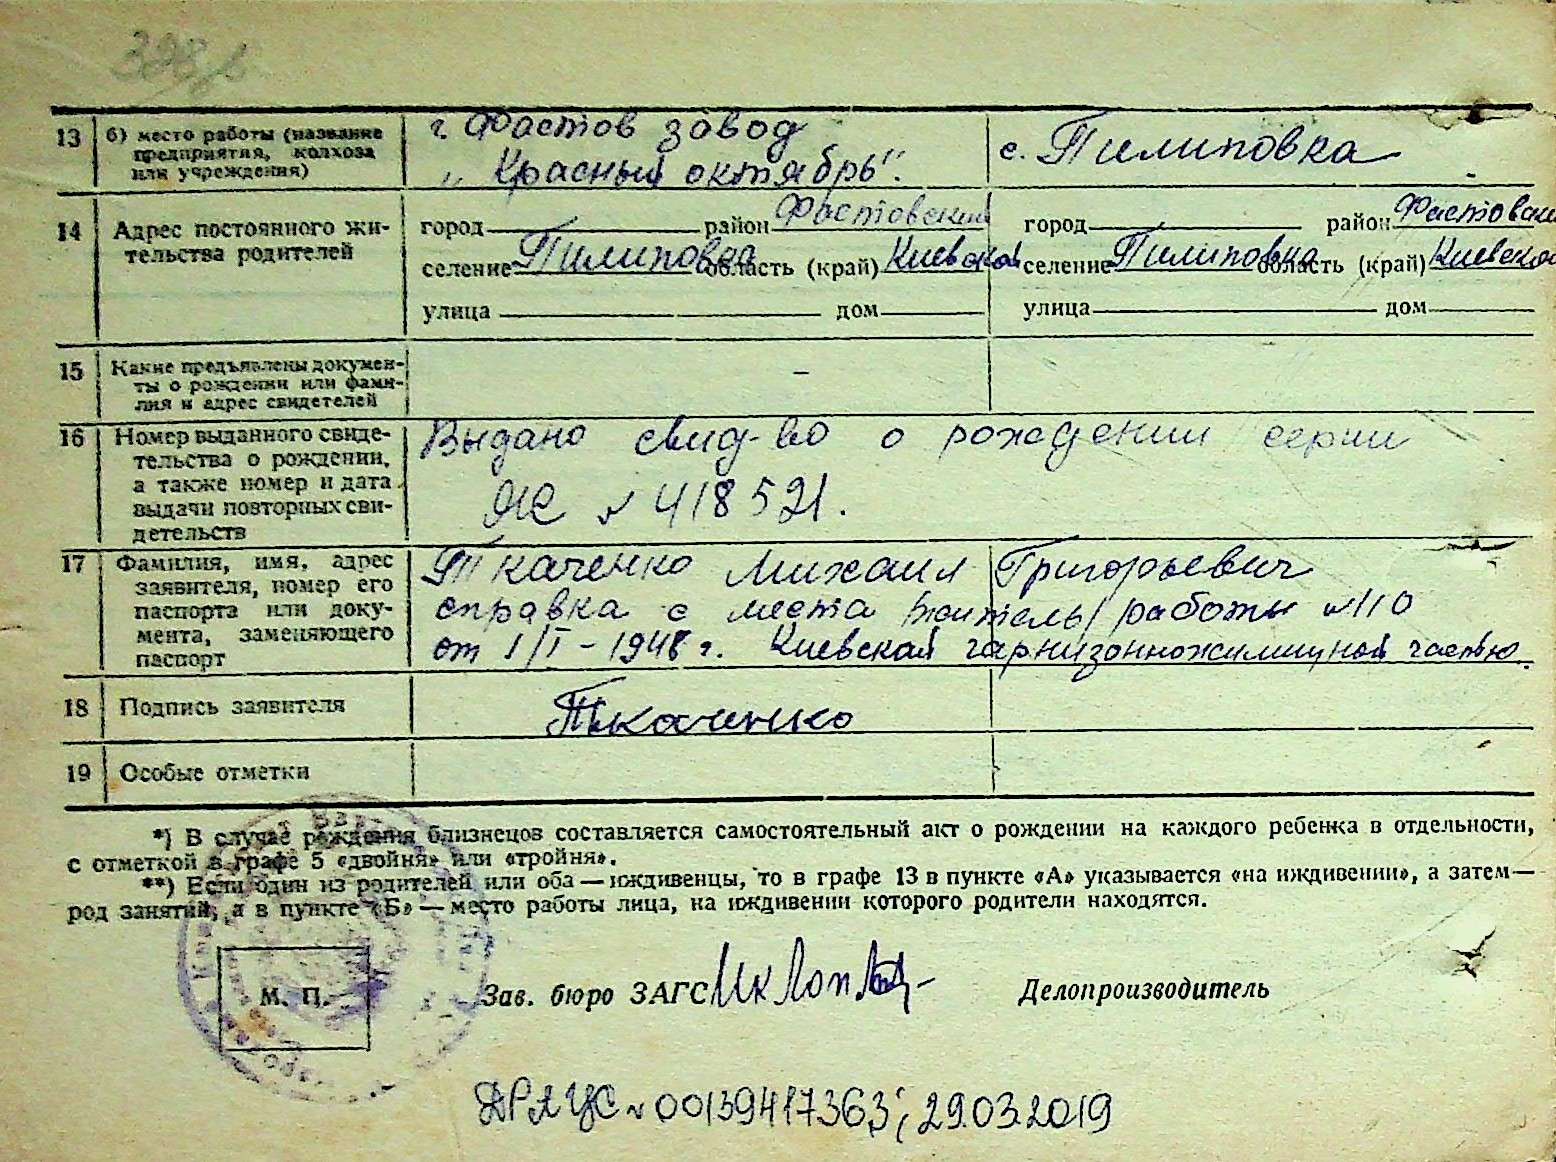 13 б) место работы (название предприятия, колхоза или учреждения)
г. Фастов завод
„Красный октябрь".
с. Пилиповка
14 Адрес постоянного жительства родителей
город район Фастовский
селение Пилиповка область (край) Киевская
улица дом
город район Фастовский
селение Пилиповка область (край) Киевская
улица дом
15 Какие предъявлены документы о рождении или фамилия и адрес свидетелей
–
16 Номер выданного свидетельства о рождении, а также номер и дата выдачи повторных свидетельств
Выдано свид-во о рождении серии
№ 418521.
17 Фамилия, имя, адрес заявителя, номер его паспорта или документа, заменяющего паспорт
Ткаченко Михаил Григорьевич
справка с места работы №110
от 1/I – 1948 г. Киевской частью.
18 Подпись заявителя
Ткаченко
19 Особые отметки
*) В случае рождения близнецов составляется самостоятельный акт о рождении на каждого ребенка в отдельности,
с отметкой в графе 5 «двойня» или «тройня».
**) Если один из родителей или оба — иждивенцы, то в графе 13 в пункте «А» указывается «на иждивении», а затем —
род занятий, а в пункте «Б» — место работы лица, на иждивении которого родители находятся.
М. П.
Зав. бюро ЗАГС
Делопроизводитель
ДРАЦС № 00139417363; 29.03.2019